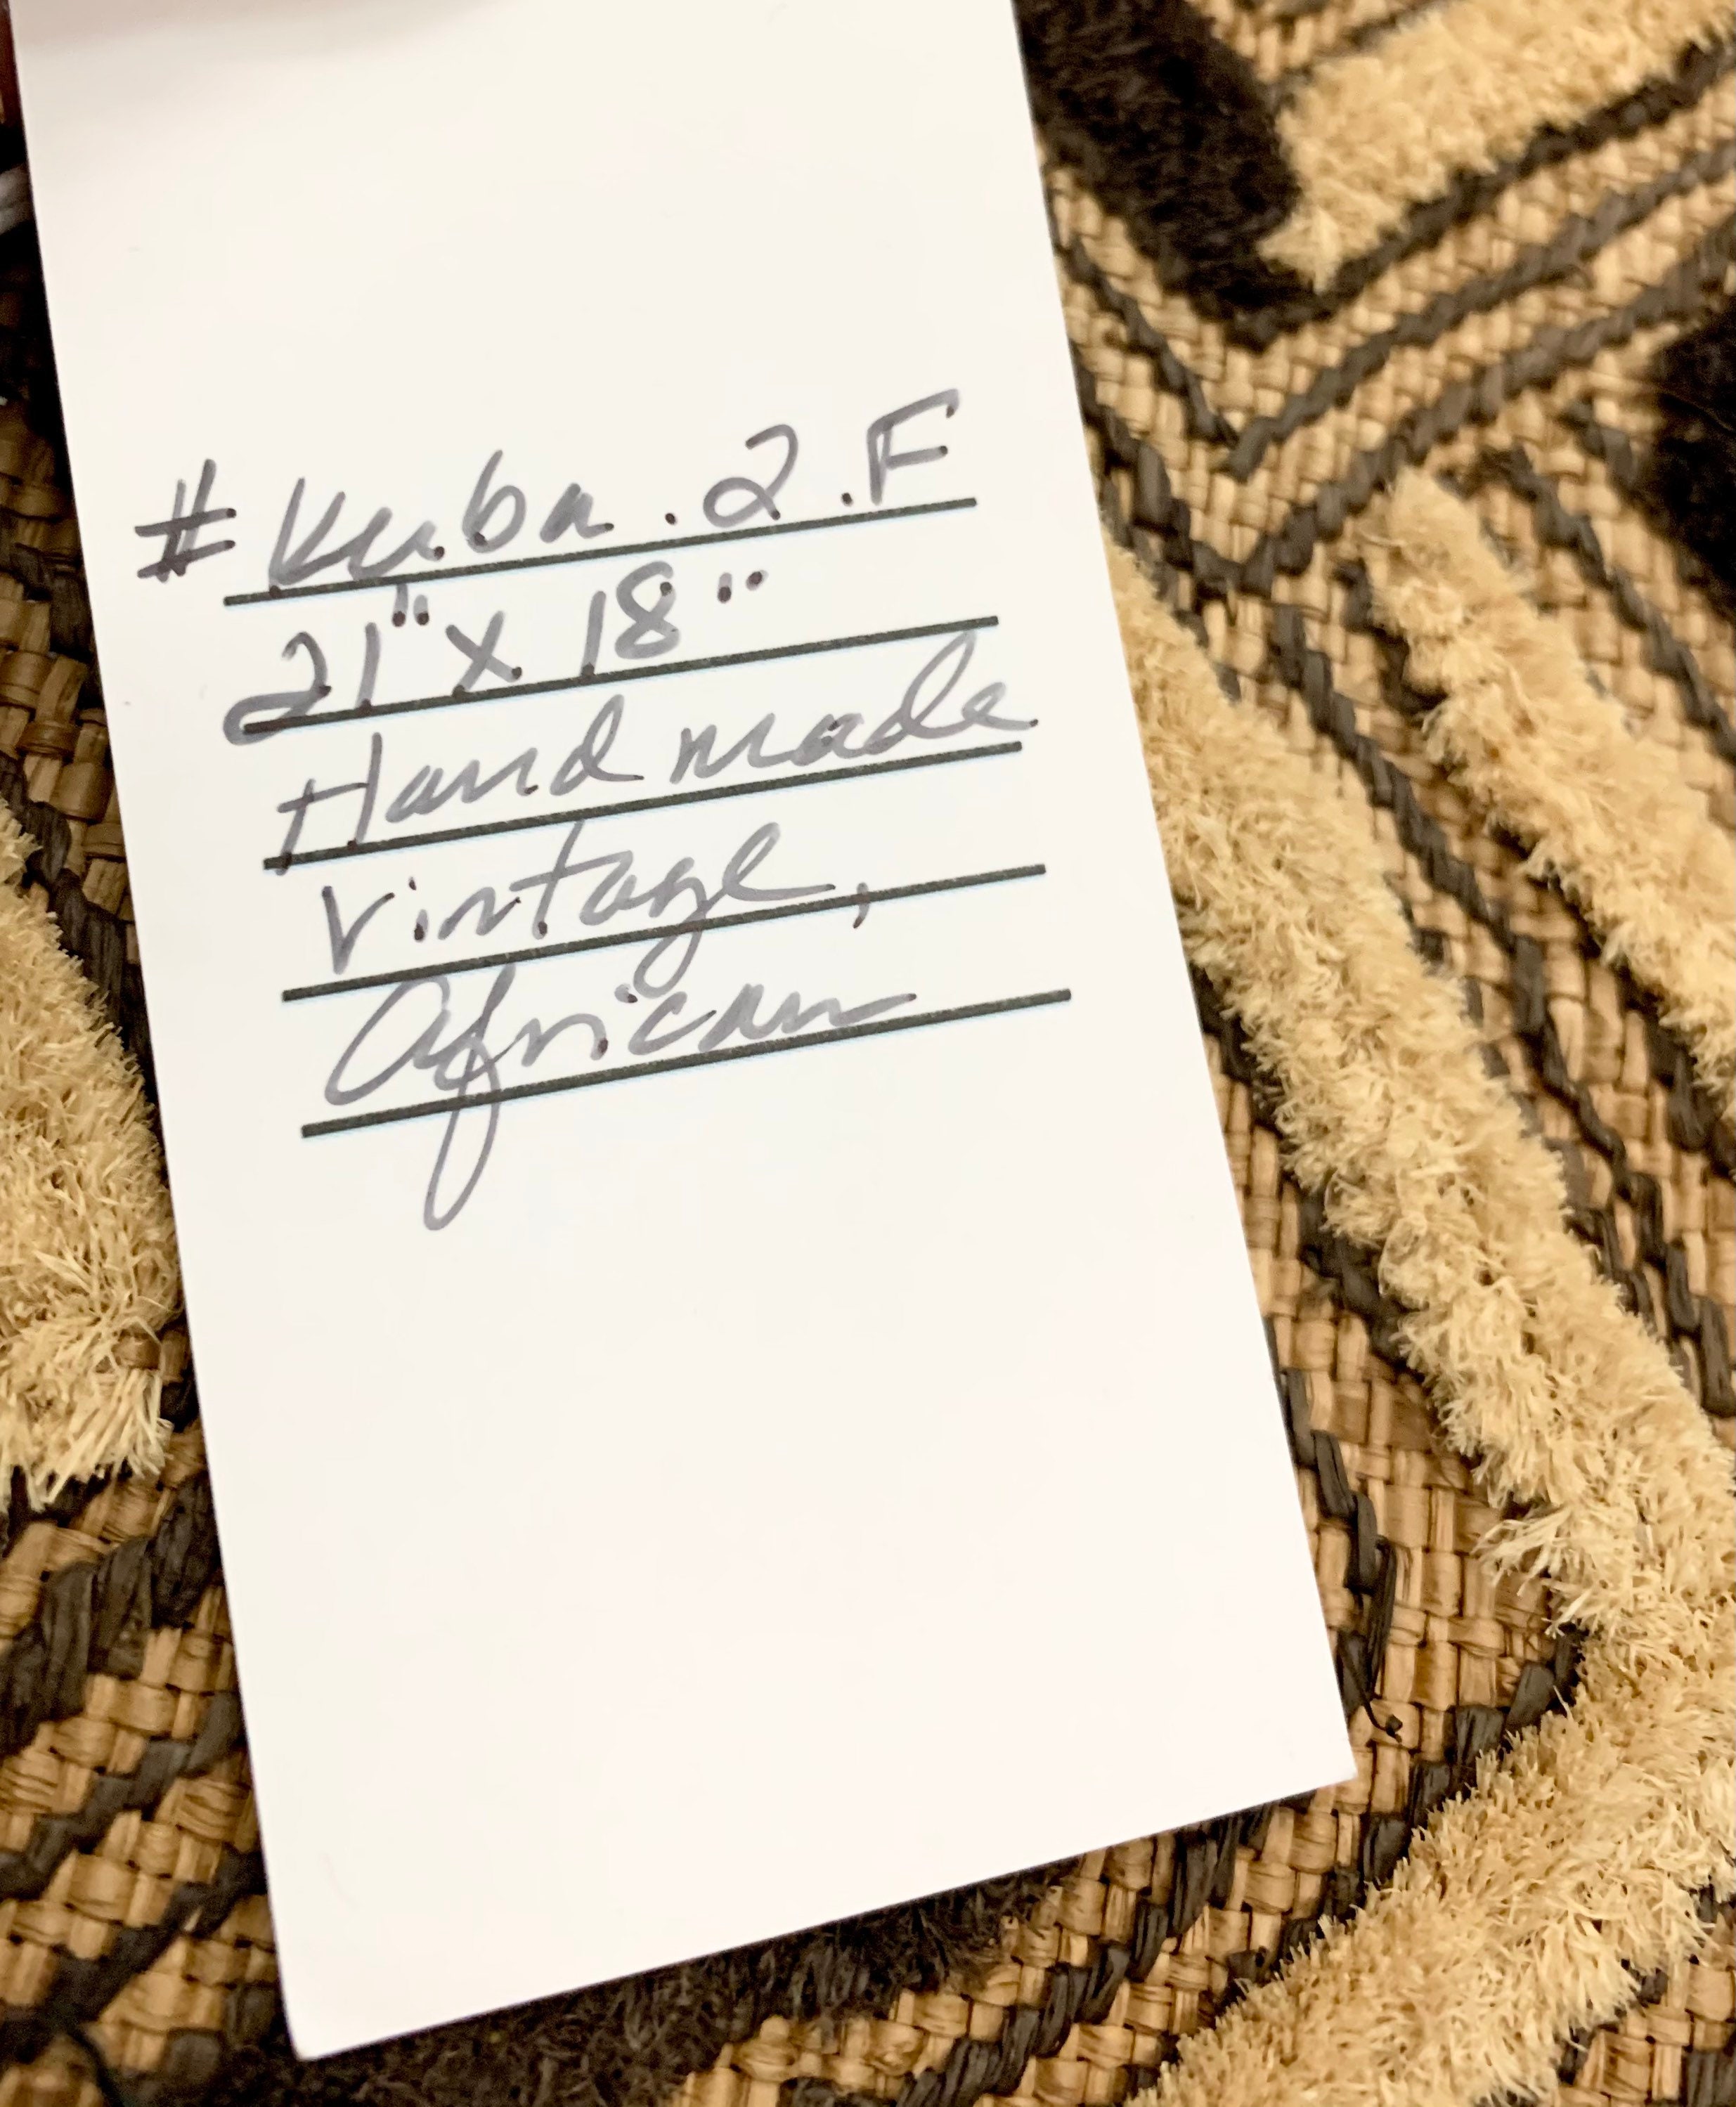 # Kuba.2.F
21" X 18"
Handmade
Vintage,
African